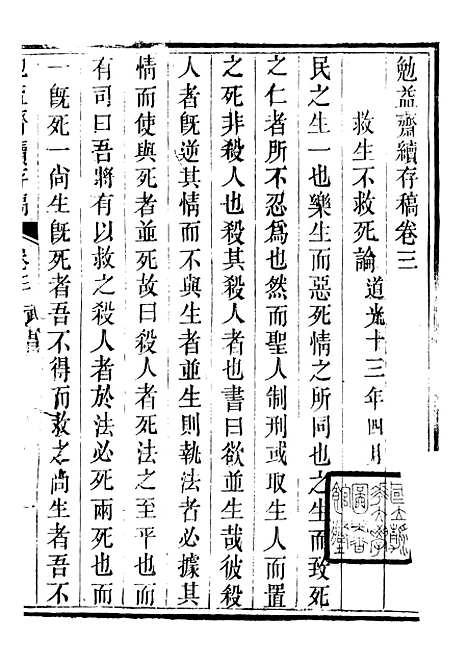 勉益齋續存稿卷三
救生不救死論 道光十三年四月
民之生一也樂生而惡死情之所同也生之而致死
之仁者所不忍爲也然而聖人制刑或取生人而置
之死非殺人也殺其殺人者也書曰欲並生哉彼殺
人者旣逆其情而不與生者並生則執法者必據其
情而使與死者並死故曰殺人者死法之至平也而
有司曰吾將有以救之殺人者於法必死兩死也而
一旣死一尚生旣死者吾不得而救之尚生者吾不
勉益齋續存稿 卷三
國立京大學圖書館藏